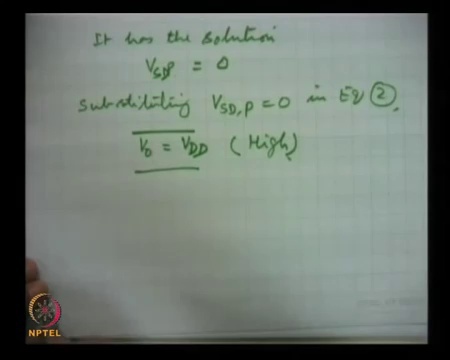 It has the solution
V_SD,P = 0
Substituting V_SD,P = 0 in Eq ②.
V_O = V_DD (High)
NPTEL